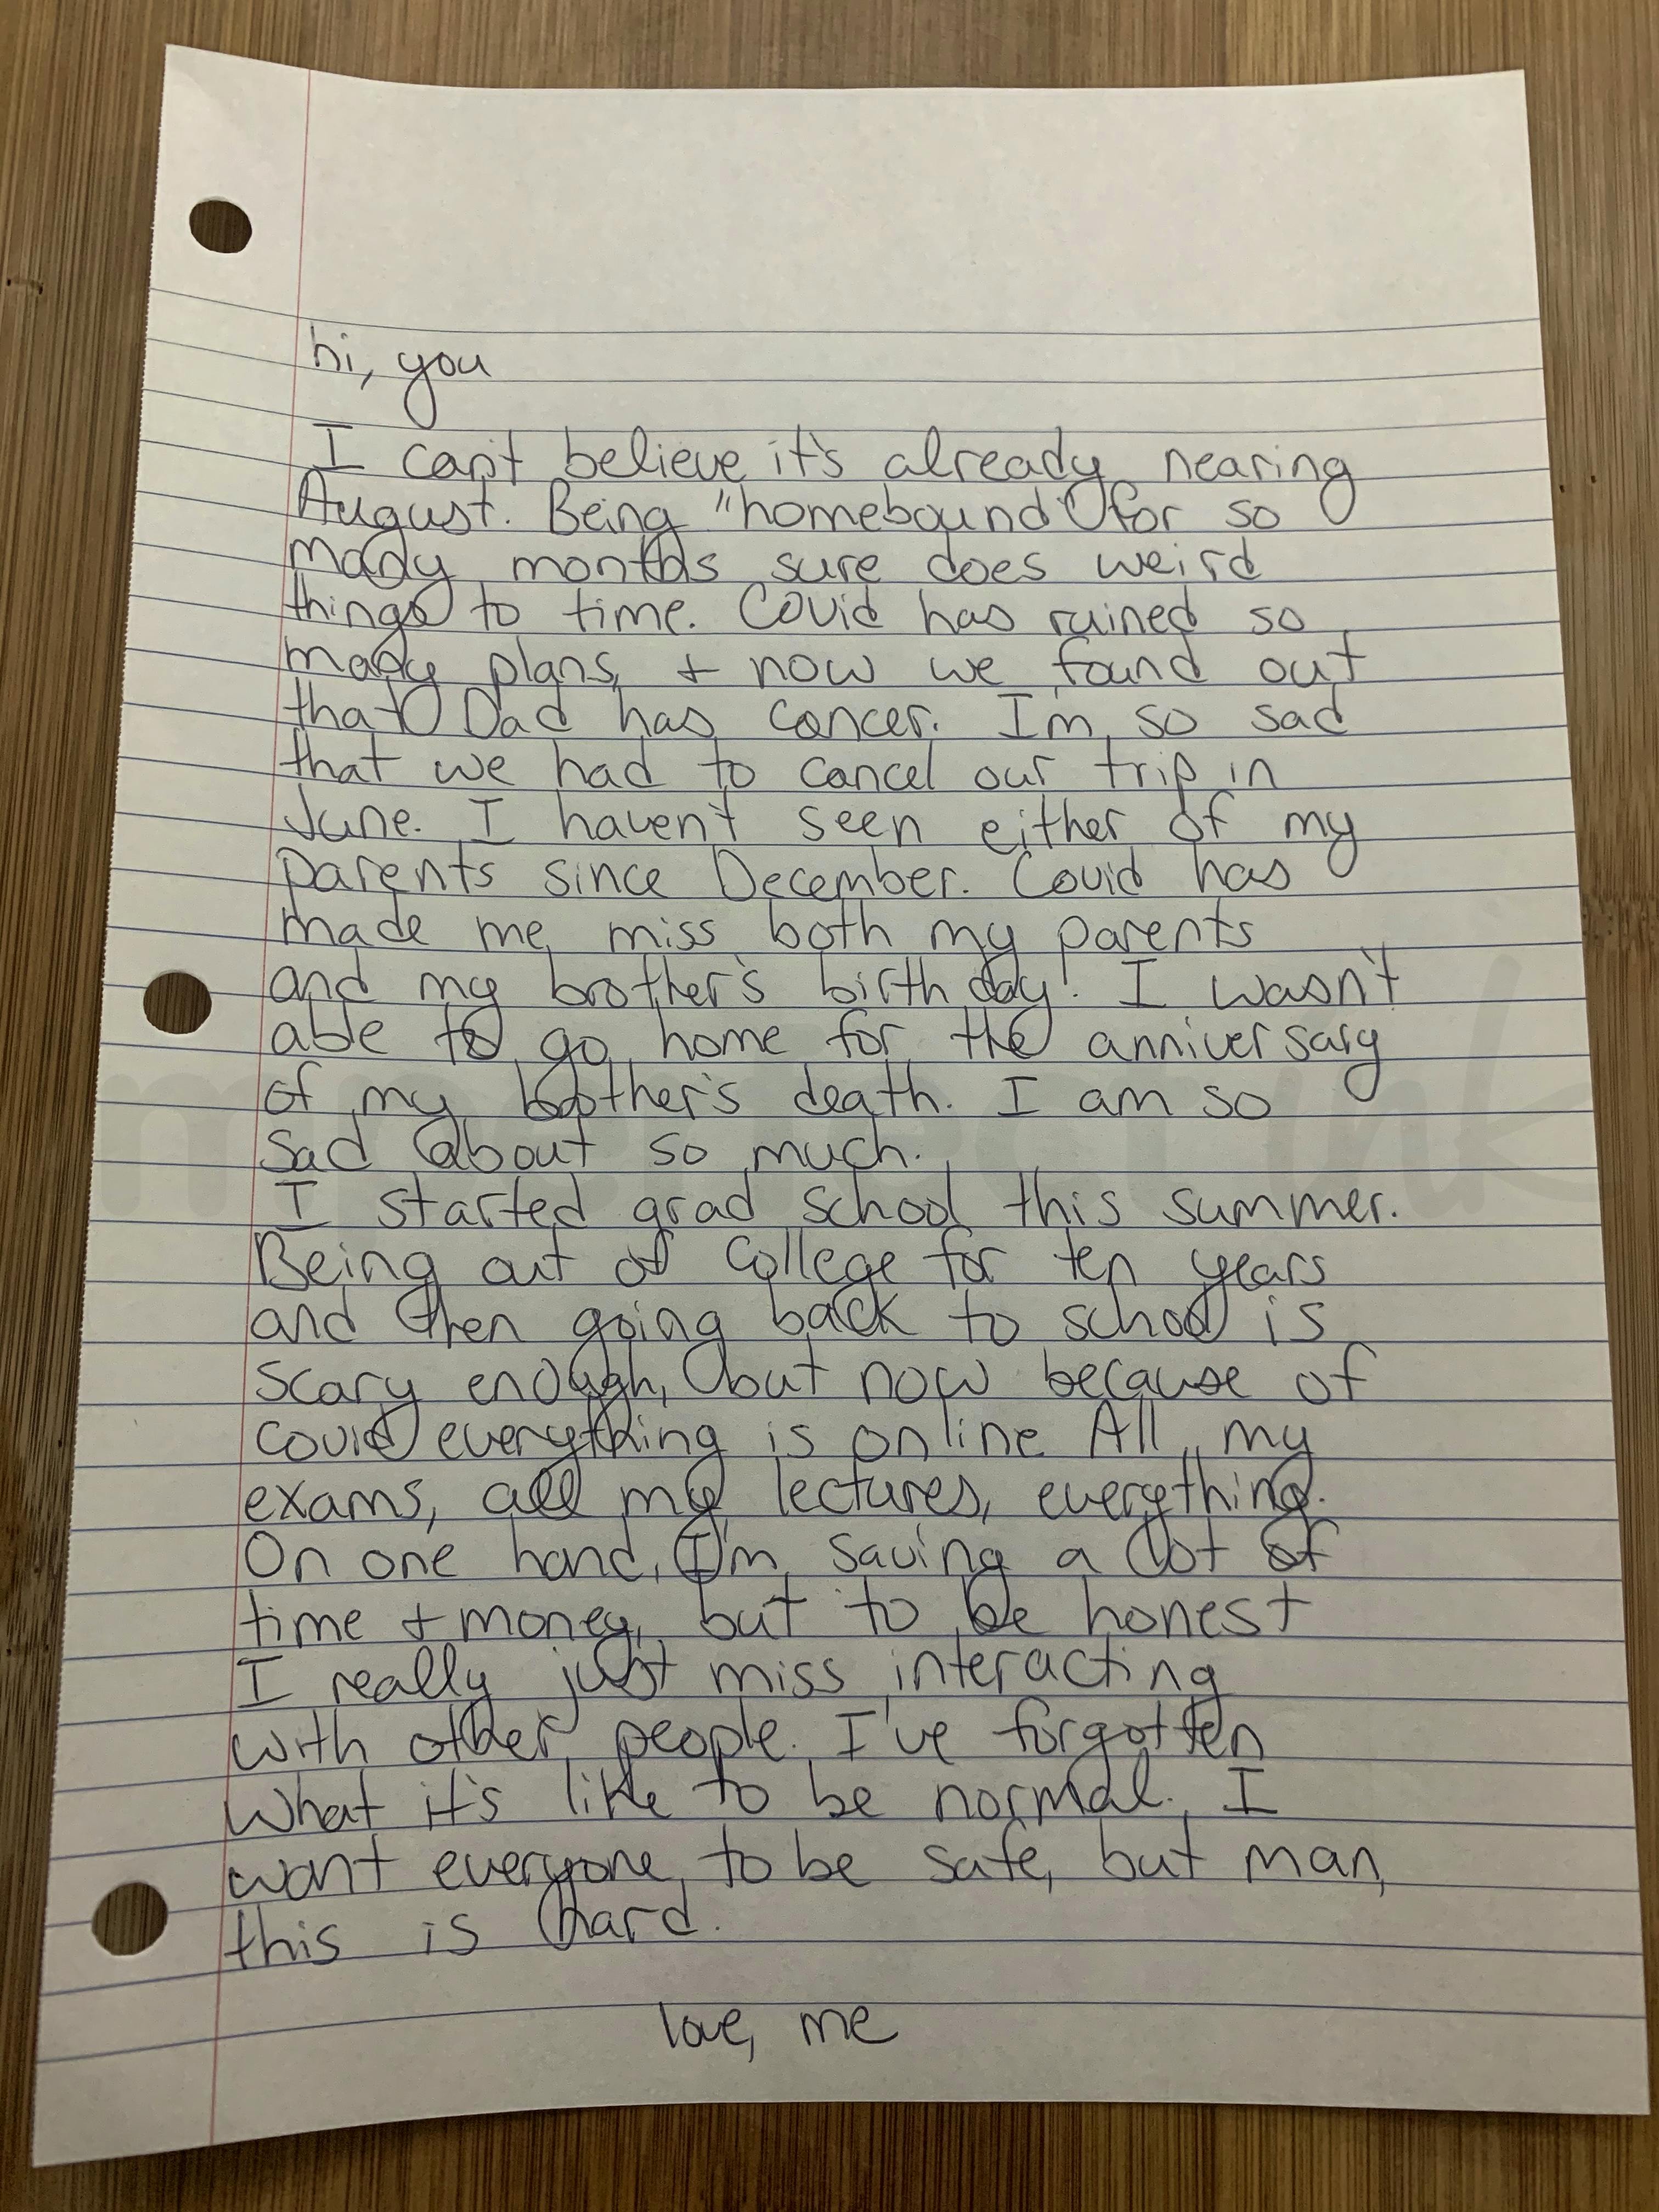 hi, you
I can't believe it's already nearing
August. Being "homebound" for so
many months sure does weird
things to time. Covid has ruined so
many plans, + now we found out
that Dad has cancer. I'm so sad
that we had to cancel our trip in
June. I haven't seen either of my
parents since December. Covid has
made me miss both my parents
and my brother's birthday! I wasn't
able to go home for the anniversary
of my brother's death. I am so
sad about so much.
I started grad school this summer.
Being out of college for ten years
and then going back to school is
scary enough, but now because of
covid everything is online All my
exams, all my lectures, everything.
On one hand, I'm saving a lot of
time + money, but to be honest
I really just miss interacting
with other people. I've forgotten
what it's like to be normal. I
want everyone to be safe, but man,
this is hard.
love, me